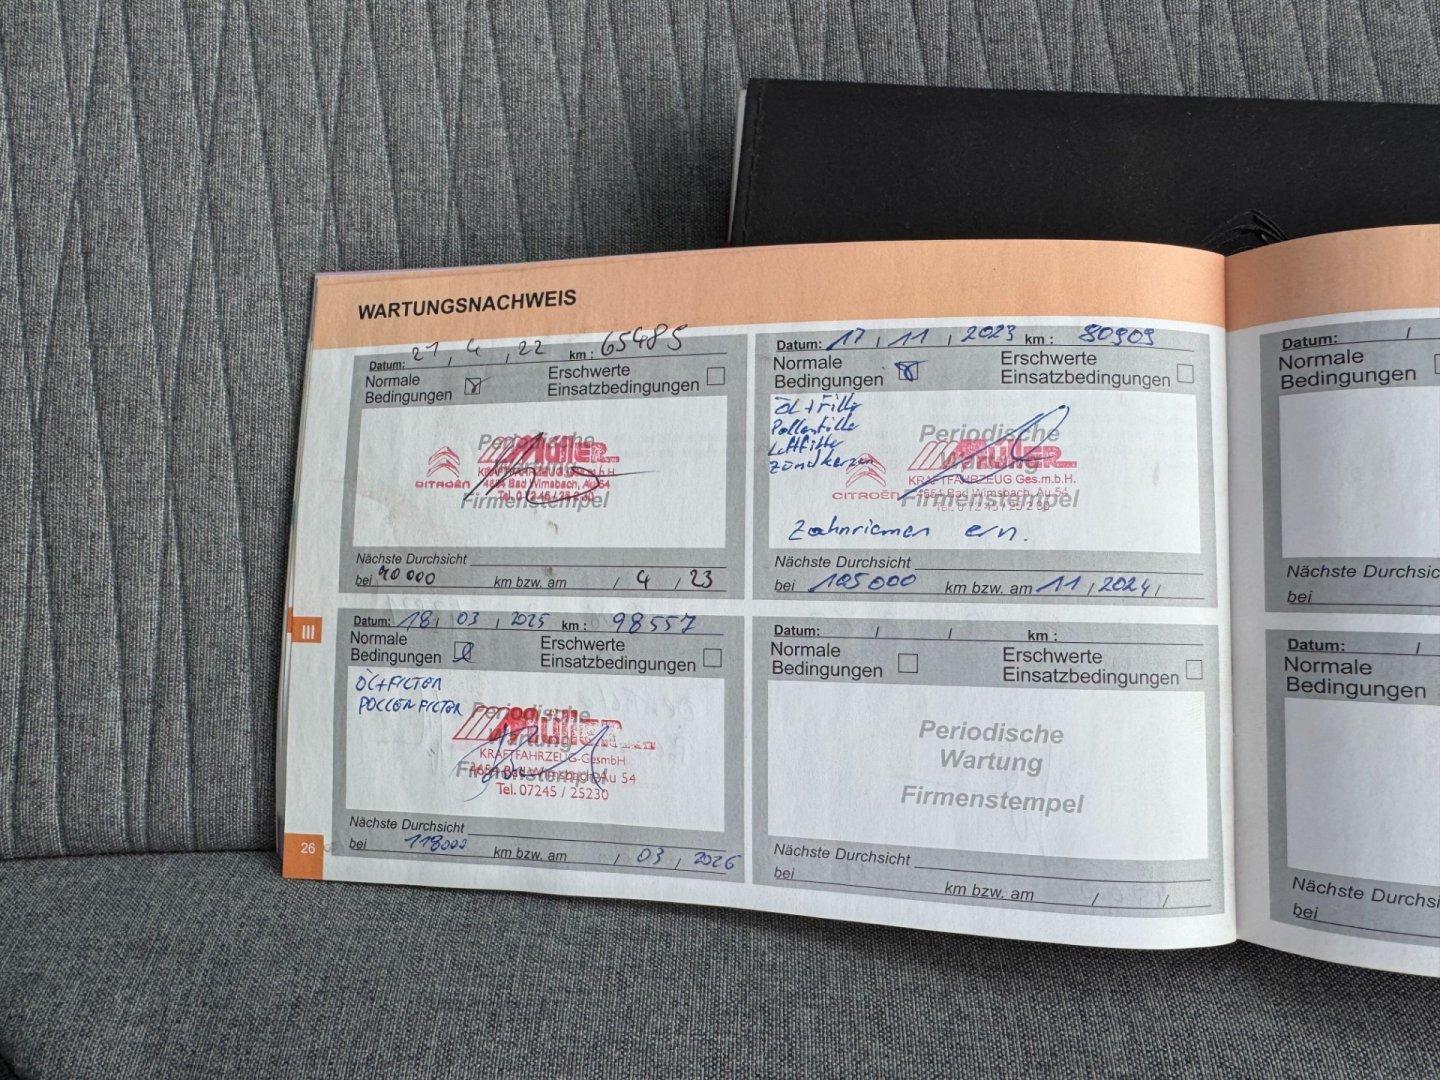 WARTUNGSNACHWEIS
Datum: 21, 4, 22 km: 65485
Normale Bedingungen
Erschwerte Einsatzbedingungen
Periodische
Wartung
Firmenstempel
CITROËN
MÜLLER
KRAFTFAHRZEUG Ges.m.b.H.
4654 Bad Wimsbach, Au 54
Tel. 0 72 45 / 25 2 30
Nächste Durchsicht
bei 90 000 km bzw. am / 4 / 23
Datum: 17, 11, 2023 km: 80909
Normale Bedingungen
Erschwerte Einsatzbedingungen
ÖL + Filter
Pollenfilter
Luftfilter
Zündkerzen
Periodische
Wartung
Firmenstempel
CITROËN
MÜLLER
KRAFTFAHRZEUG Ges.m.b.H.
4654 Bad Wimsbach, Au 54
Tel. 0 72 45 / 25 2 30
Zahnriemen ern.
Nächste Durchsicht
bei 105000 km bzw. am 11 / 2024 /
Datum: 18, 03, 2025 km: 98557
Normale Bedingungen
Erschwerte Einsatzbedingungen
ÖL+FILTER
POLLENFILTER
Periodische
Wartung
Firmenstempel
MÜLLER
KRAFTFAHRZEUG-GesmbH
4654 Bad Wimsbach, Au 54
Tel. 07245 / 25230
Nächste Durchsicht
bei 118000 km bzw. am / 03 / 2026
Datum: / / km:
Normale Bedingungen
Erschwerte Einsatzbedingungen
Periodische
Wartung
Firmenstempel
Nächste Durchsicht
bei km bzw. am / /
III
26
Datum: /
Normale
Bedingungen
Nächste Durchsic
bei
Datum: /
Normale
Bedingungen
Nächste Durchsi
bei